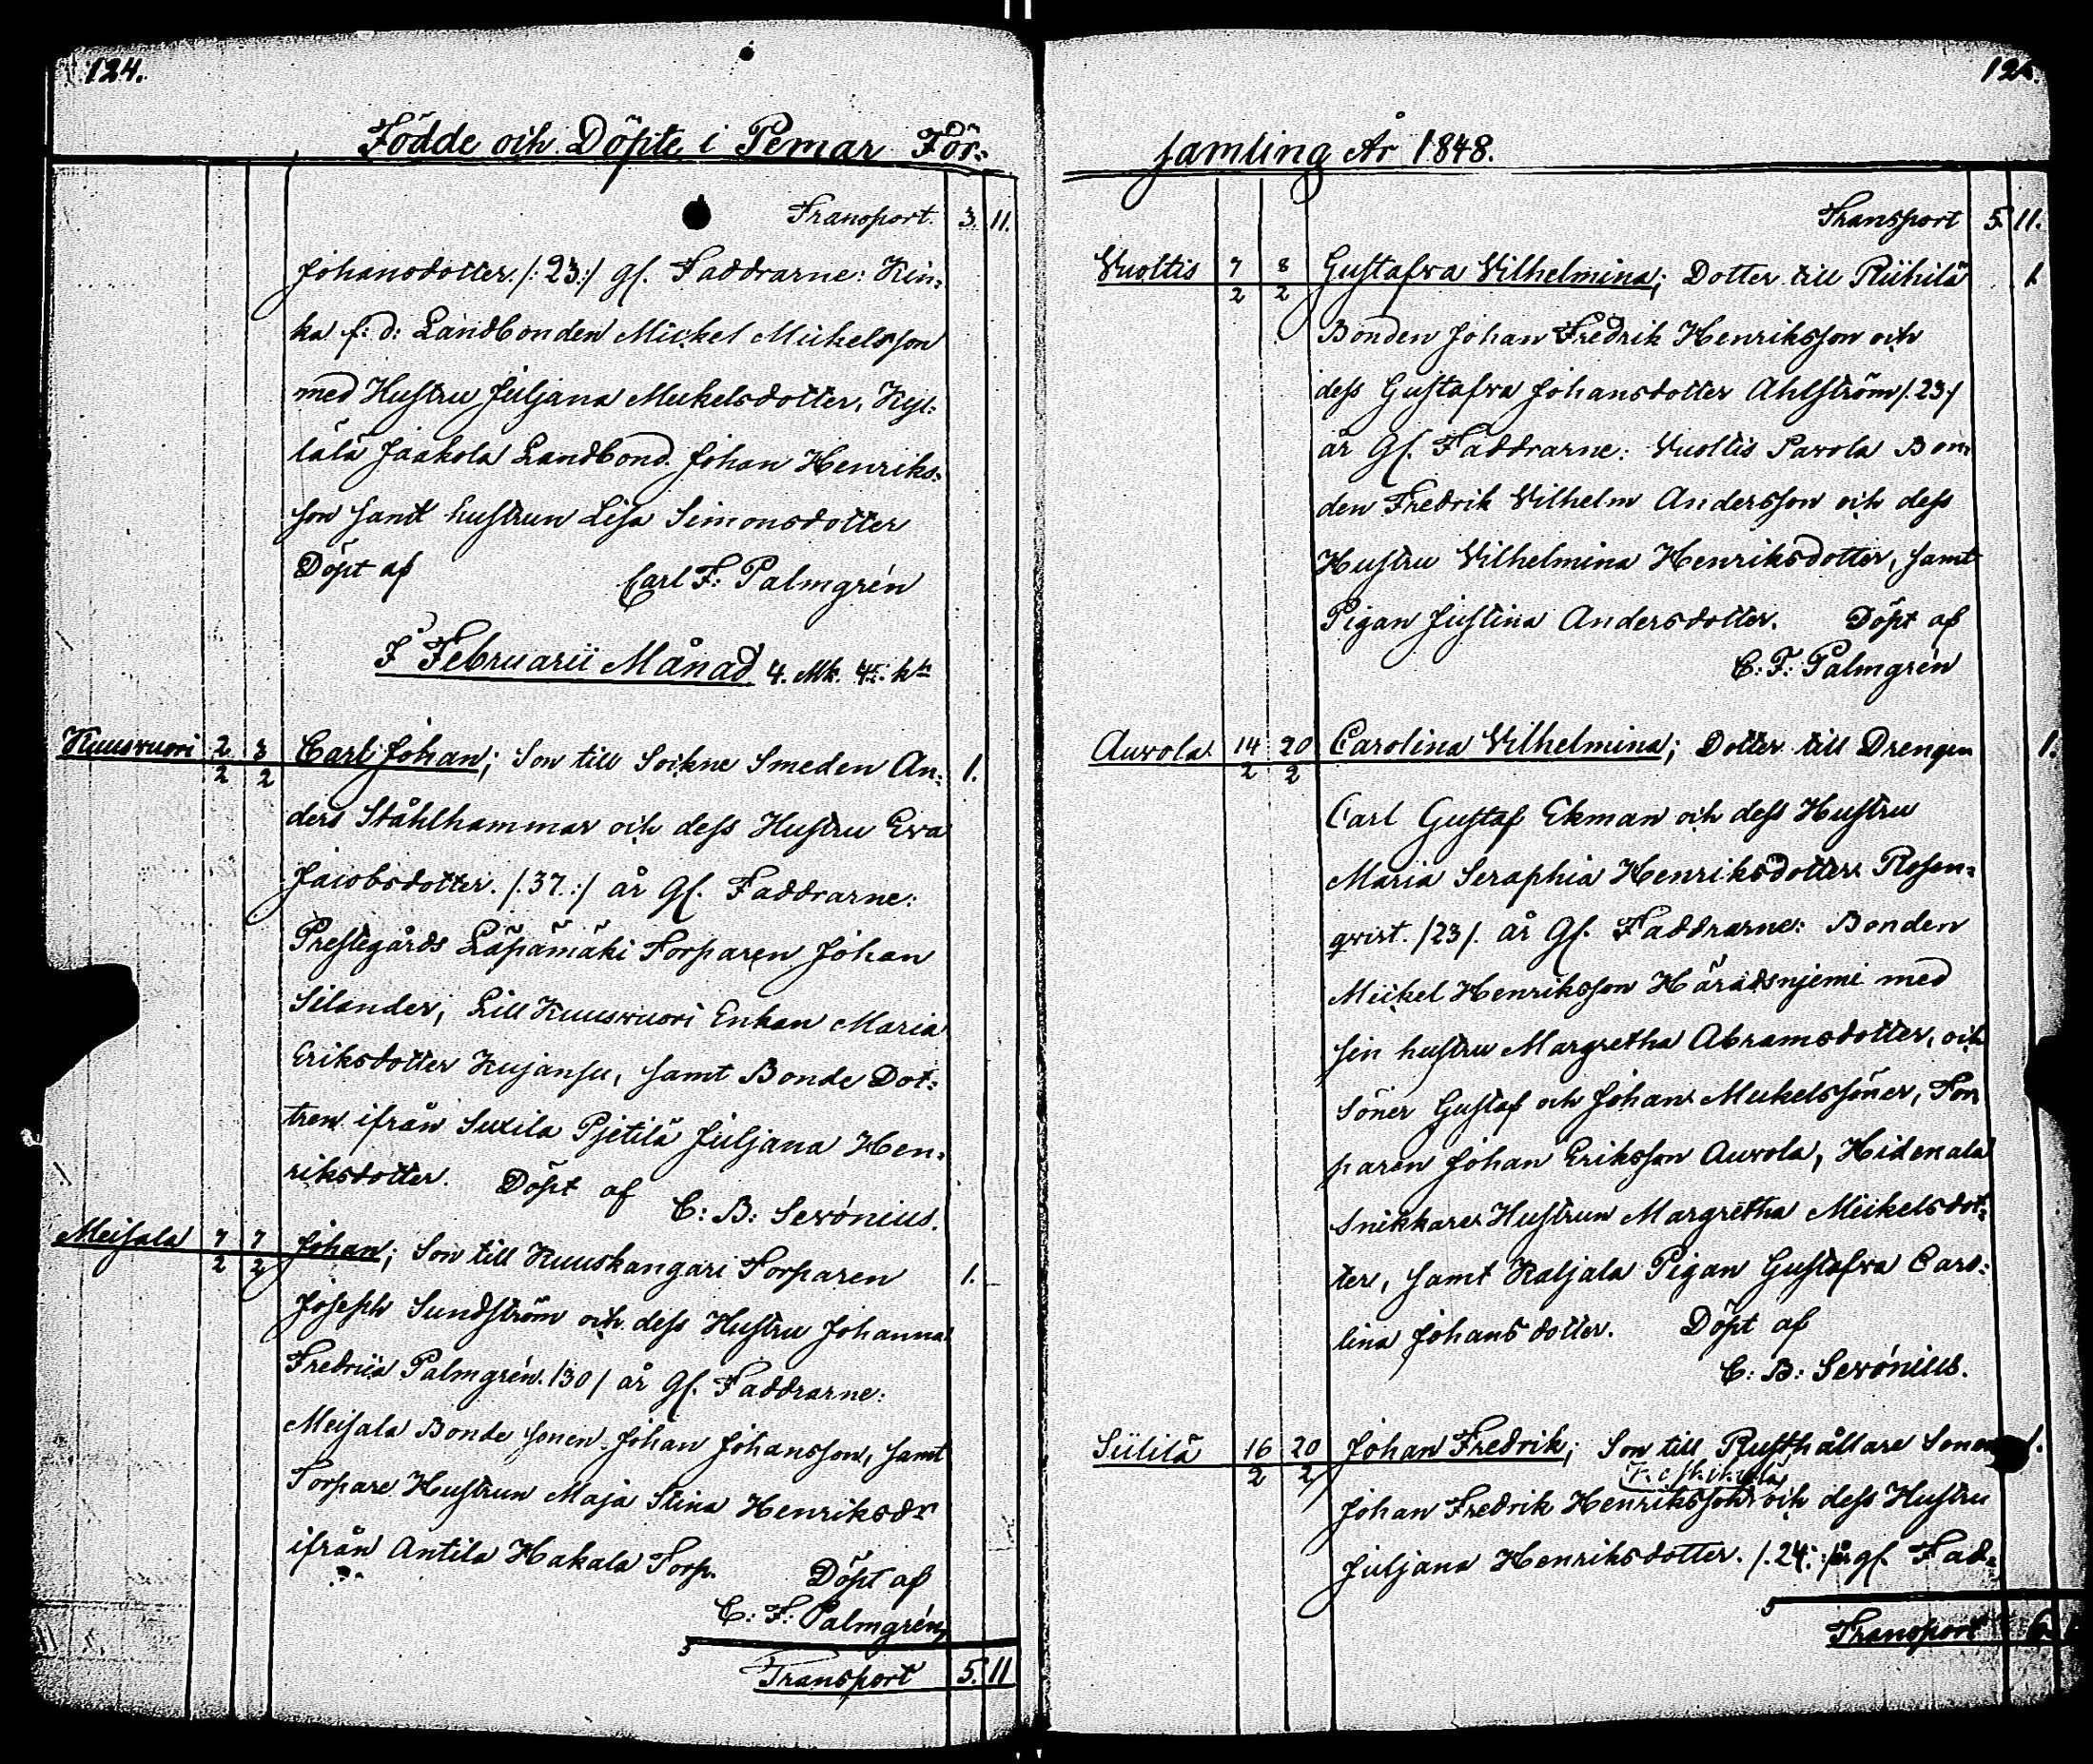 124.
Födde och Döpte i Pemar För-
Transport. 3. 11.
Johansdotter. /: 23 :/ gf. Faddrarne: Kin-
ka f: d: Landbonden Mickel Mickelsson
med Hustru Juljana Mickelsdotter, Kyl-
lälä Jaakola Landbond. Johan Henriks-
son samt hustrun Lisa Simonsdotter
Döpt af Carl F: Palmgrén
I Februarii Månad 4. Mk. 4. k
Kuusvuori 2/2 3/2 Carl Johan; Son till Sockne Smeden An- 1.
ders Ståhlhammar och dess Hustru Eva
Jacobsdotter. /. 37. :/ år Gf. Faddrarne:
Prestegårds Läpämäki Torparen Johan
Silander, Lill Kuusvuori Enkan Maria
Eriksdotter Kujansu, samt Bonde Dot-
tren ifrån Suxila Pjetilä Juljana Hen-
riksdotter. Döpt af C: B: Serónius.
Meisala 7/2 7/2 Johan; Son till Kuuskangari Torparen 1.
Joseph Sundström och dess Hustru Johanna
Fredrica Palmgrén. /30/ år Gf. Faddrarne:
Meisala Bonde sonen Johan Johansson, samt
Torpare Hustrun Maja Stina Henriksdr
ifrån Antila Hakala Torp. Döpt af
C: F: Palmgrén
Transport 5. 11
125.
samling År 1848.
Transport 5 11.
Vuoltis 7/2 8/2 Gustafva Vilhelmina; Dotter till Riihilä 1
Bonden Johan Fredrik Henriksson och
dess Gustafva Johansdotter Ahlström /. 23 /
år Gf. Faddrarne: Vuoltis Pavola Bon-
den Fredrik Vilhelm Andersson och dess
Hustru Vilhelmina Henriksdotter, samt
Pigan Justina Andersdotter. Döpt af
C: F: Palmgrén
Auvola 14/2 20/2 Carolina Vilhelmina; Dotter till Drengen 1.
Carl Gustaf Ekman och dess Hustru
Maria Seraphia Henriksdotter Rosen-
qvist. /23/. år Gf. Faddrarne: Bonden
Mickel Henriksson Häradsnjemi med
sin hustru Margretha Abramsdotter, och
Söner Gustaf och Johan Mickelssöner, Tor
paren Johan Eriksson Auvola, Hidenala
Snikkare Hustrun Margretha Mickelsdot-
ter, samt Kaljala Pigan Gustafva Caro-
lina Johansdotter. Döpt af
C: B: Serónius.
Siililä 16/2 20/2 Johan Fredrik; Son till Rusthållare Sonen 1.
Johan Fredrik Henriksson och dess Hustru
Juljana Henriksdotter. /. 24. :/ år gf. Fad-
Transport 6